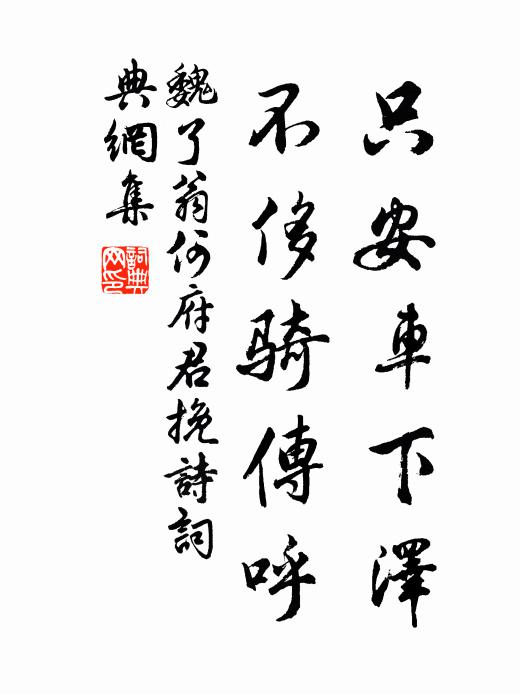 只安車下澤
不侈騎傳呼
魏了翁何府君挽詩詞
典網集
詞典
网印